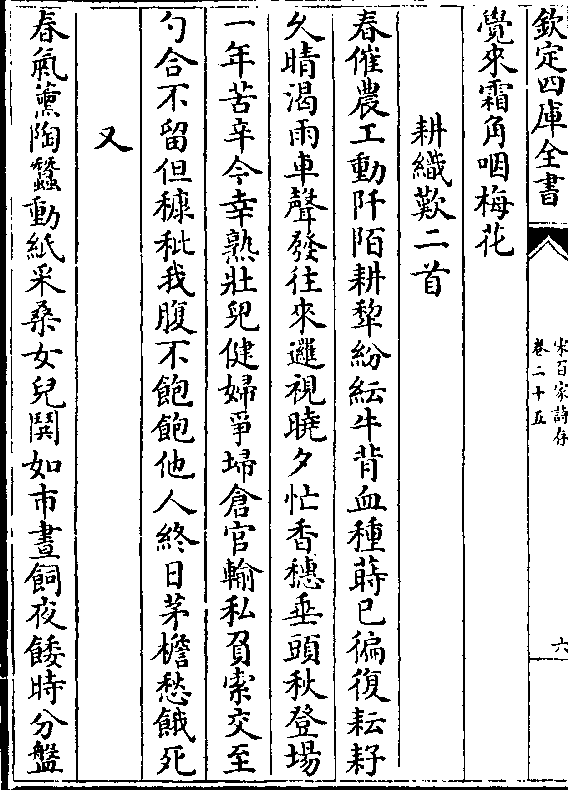 欽定四庫全書
宋百家詩存
卷二十五
六
覺來霜角咽梅花
耕織歎二首
春催農工動阡陌耕犂紛紜牛背血種蒔已徧復耘耔
久晴渴雨車聲發往來邏視曉夕忙香穗垂頭秋登場
一年苦辛今幸熟壯兒健婦爭埽倉官輸私負索交至
勺合不留但穅秕我腹不飽飽他人終日茅檐愁餓死
又
春氣薰陶蠶動紙采桑女兒鬨如市晝飼夜餧時分盤